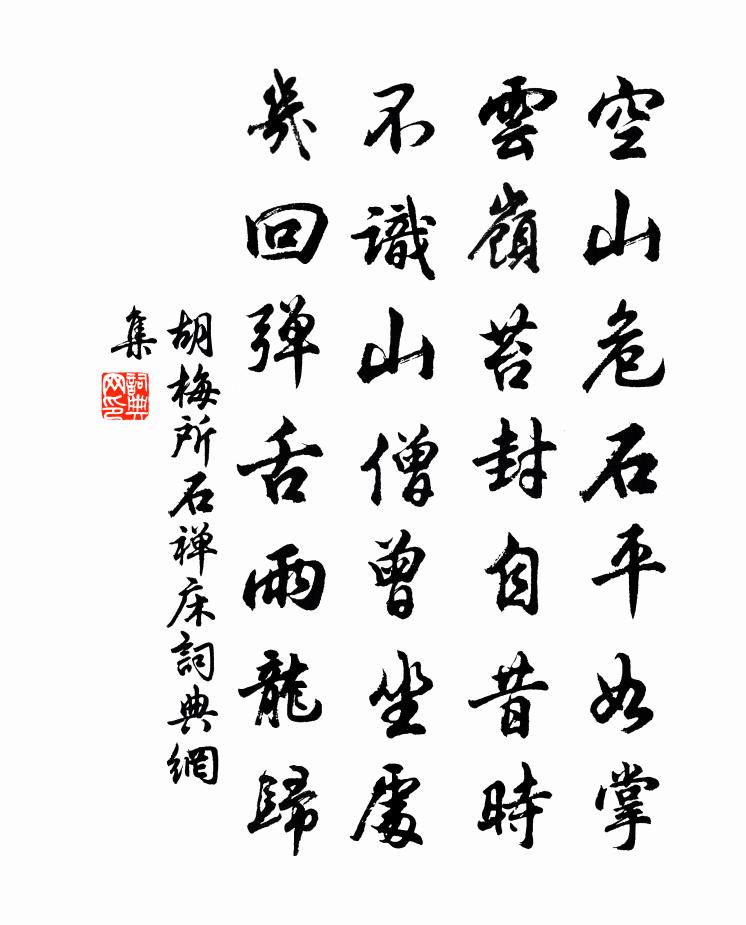 空山危石平如掌
雲嶺苔封自昔時
不識山僧曾坐處
幾回弾舌雨龍歸
胡梅所石禅床詞典網
集
詞典網印